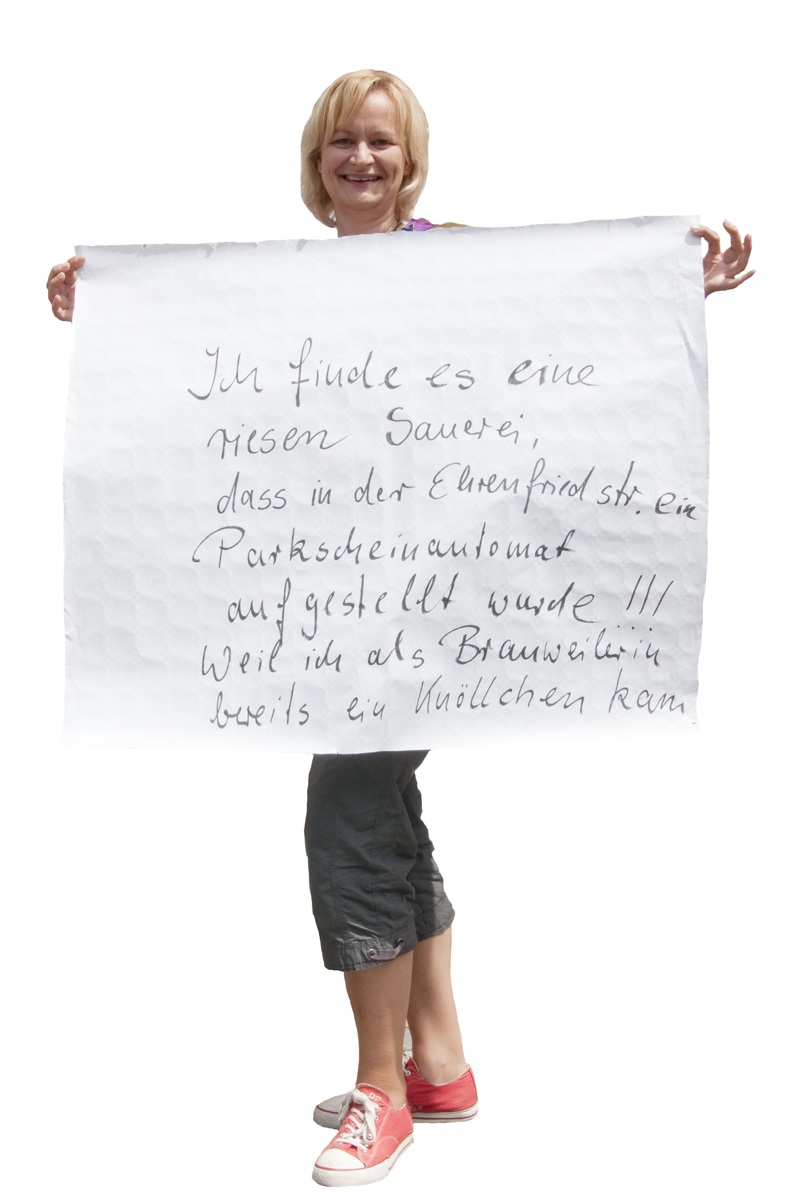 Ich finde es eine
riesen Sauerei,
dass in der Ehrenfriedstr. ein
Parkscheinautomat
aufgestellt wurde !!!
Weil ich als Brauweilerin
bereits ein Knöllchen kam